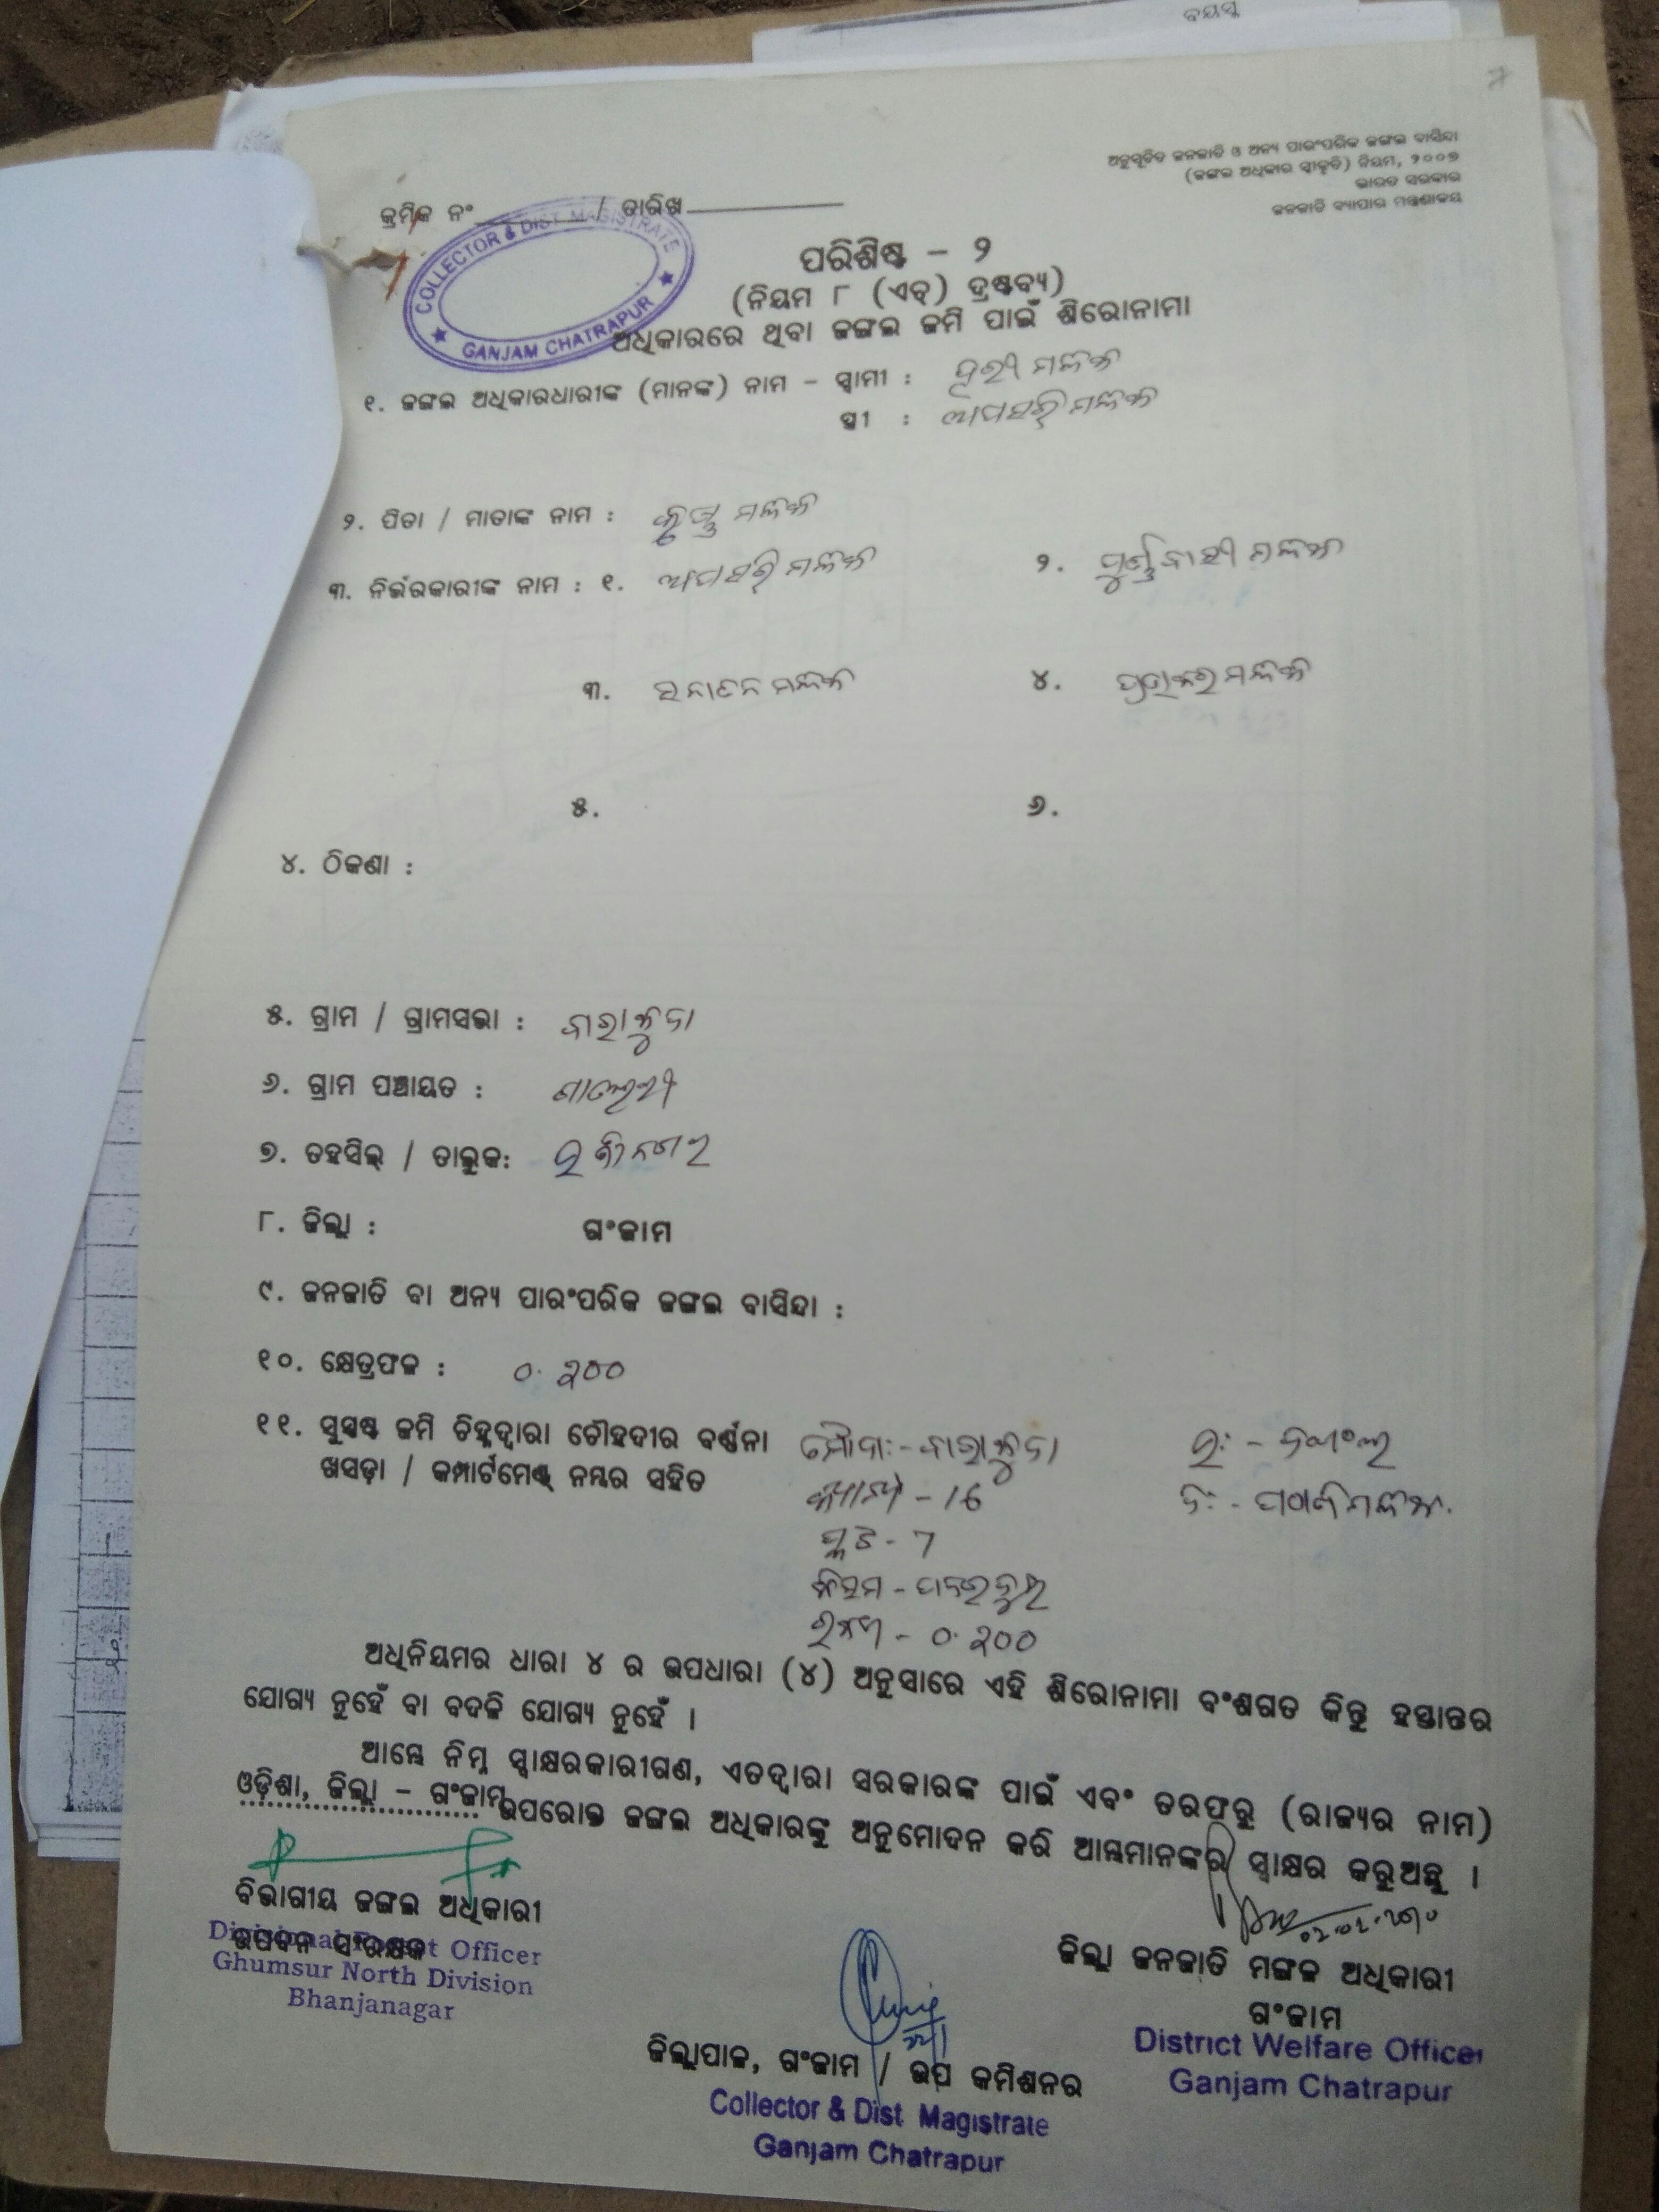 ବୟସ୍କ
ଅନୁସୂଚିତ ଜନଜାତି ଓ ଅନ୍ୟ ପାରଂପରିକ ଜଙ୍ଗଲ ବାସିନ୍ଦା
(ଜଙ୍ଗଲ ଅଧିକାର ସ୍ୱୀକୃତି) ନିୟମ, ୨୦୦୭
ଭାରତ ସରକାର
ଜନଜାତି ବ୍ୟାପାର ମନ୍ତ୍ରଣାଳୟ
କ୍ରମିକ ନଂ / ତାରିଖ
COLLECTOR & DIST. MAGISTRATE
GANJAM CHATRAPUR
ପରିଶିଷ୍ଟ - ୨
(ନିୟମ ୮ (ଏଚ୍) ଦ୍ରଷ୍ଟବ୍ୟ)
ଅଧିକାରରେ ଥିବା ଜଙ୍ଗଲ ଜମି ପାଇଁ ଶିରୋନାମା
୧. ଜଙ୍ଗଲ ଅଧିକାରଧାରୀଙ୍କ (ମାନଙ୍କ) ନାମ - ସ୍ୱାମୀ : ମଲ୍ଲିକ
ସ୍ତ୍ରୀ : ମଲ୍ଲିକ
୨. ପିତା / ମାତାଙ୍କ ନାମ : ମଲ୍ଲିକ
୩. ନିର୍ଭରକାରୀଙ୍କ ନାମ : ୧. ମଲ୍ଲିକ ୨. ମଲ୍ଲିକ
୩. ସନାତନ ମଲ୍ଲିକ ୪. ମଲ୍ଲିକ
୫. ୬.
୪. ଠିକଣା :
୫. ଗ୍ରାମ / ଗ୍ରାମସଭା :
୬. ଗ୍ରାମ ପଞ୍ଚାୟତ :
୭. ତହସିଲ୍ / ତାଲୁକ:
୮. ଜିଲ୍ଲା : ଗଂଜାମ
୯. ଜନଜାତି ବା ଅନ୍ୟ ପାରଂପରିକ ଜଙ୍ଗଲ ବାସିନ୍ଦା :
୧୦. କ୍ଷେତ୍ରଫଳ : ୦.୨୦୦
୧୧. ସୁସ୍ପଷ୍ଟ ଜମି ଚିହ୍ନଦ୍ୱାରା ଚୌହଦୀର ବର୍ଣ୍ଣନା ମୌଜା:-
ଖସଡ଼ା / କମ୍ପାର୍ଟମେଣ୍ଟ୍ ନମ୍ବର ସହିତ - 16
ପ୍ଲଟ - 7
କିସମ -
ରକବା - ୦.୨୦୦
ଅଧିନିୟମର ଧାରା ୪ ର ଉପଧାରା (୪) ଅନୁସାରେ ଏହି ଶିରୋନାମା ବଂଶଗତ କିନ୍ତୁ ହସ୍ତାନ୍ତର
ଯୋଗ୍ୟ ନୁହେଁ ବା ବଦଳି ଯୋଗ୍ୟ ନୁହେଁ ।
ଆମ୍ଭେ ନିମ୍ନ ସ୍ୱାକ୍ଷରକାରୀଗଣ, ଏତଦ୍ୱାରା ସରକାରଙ୍କ ପାଇଁ ଏବଂ ତରଫରୁ (ରାଜ୍ୟର ନାମ)
ଓଡ଼ିଶା, ଜିଲ୍ଲା - ଗଂଜାମ ଉପରୋକ୍ତ ଜଙ୍ଗଲ ଅଧିକାରଙ୍କୁ ଅନୁମୋଦନ କରି ଆମ୍ଭମାନଙ୍କର ସ୍ୱାକ୍ଷର କରୁଅଛୁ ।
ବିଭାଗୀୟ ଜଙ୍ଗଲ ଅଧିକାରୀ
ଉପବନ ସଂରକ୍ଷକ
Divisional Forest Officer
Ghumsur North Division
Bhanjanagar
ଜିଲ୍ଲାପାଳ, ଗଂଜାମ / ଉପ କମିଶନର
Collector & Dist. Magistrate
Ganjam Chatrapur
ଜିଲ୍ଲା ଜନଜାତି ମଙ୍ଗଳ ଅଧିକାରୀ
ଗଂଜାମ
District Welfare Officer
Ganjam Chatrapur